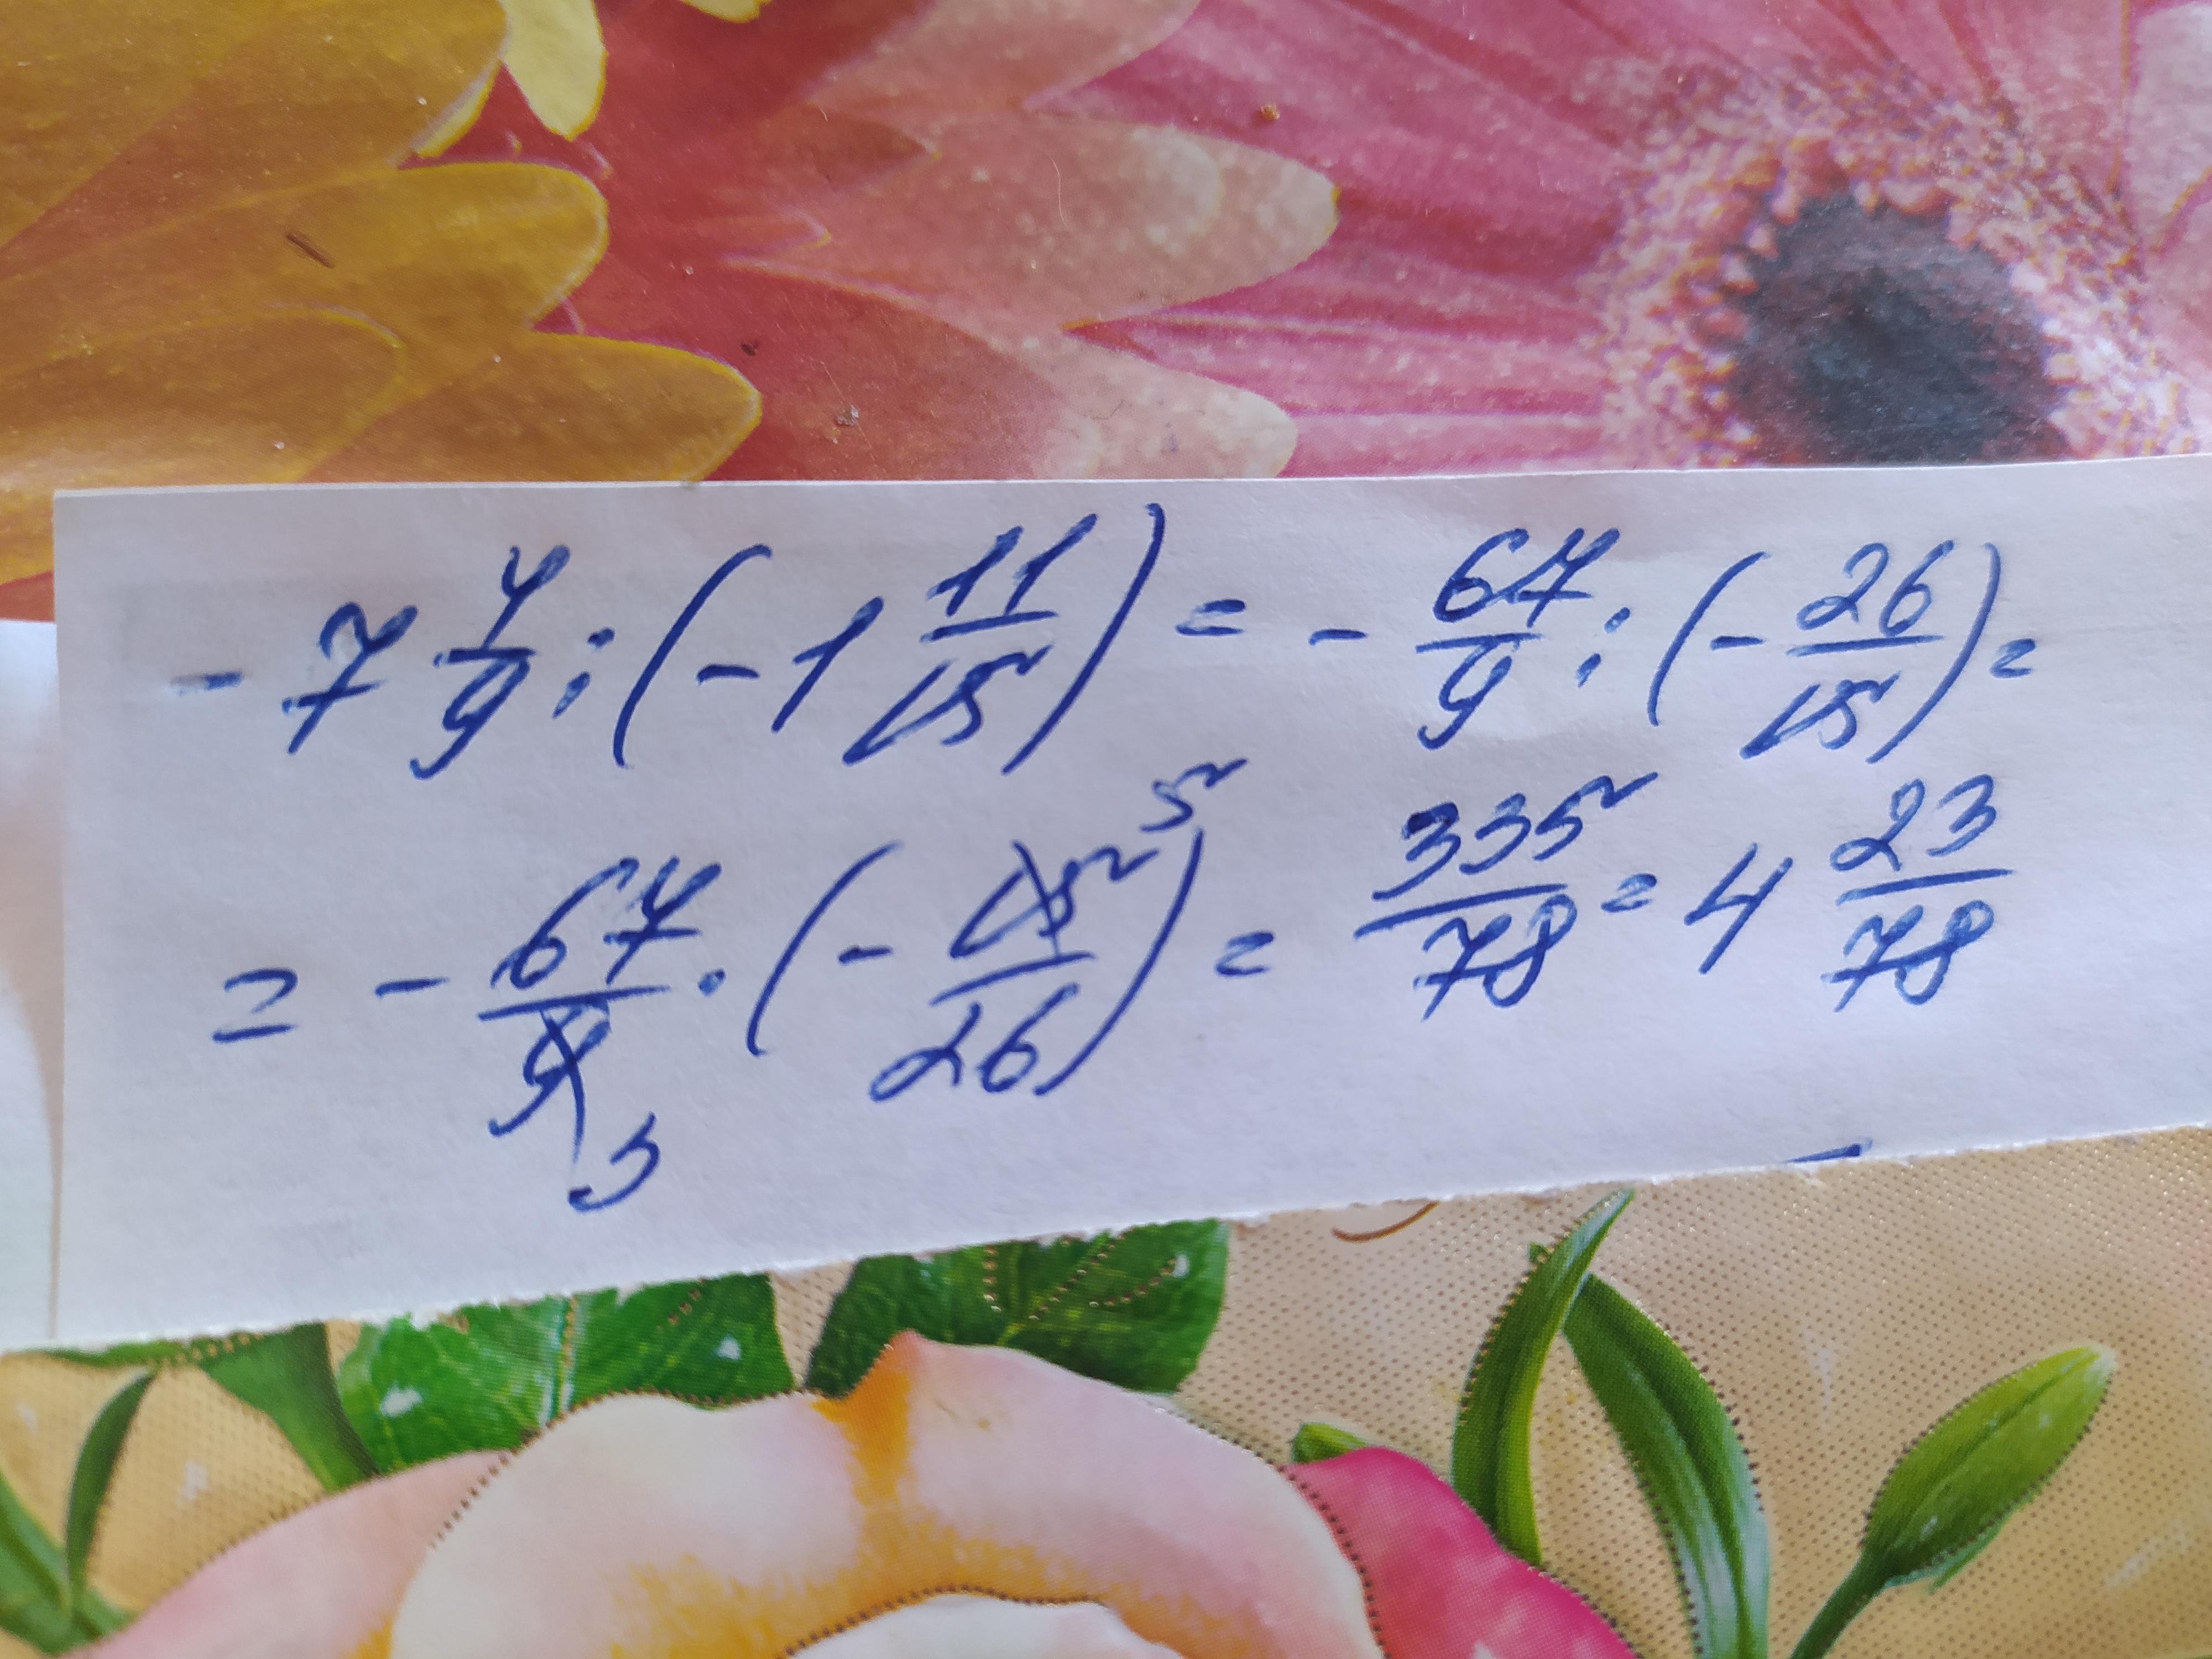 -7 4/9 : (-1 11/15) = - 67/9 : (- 26/15) =
= - 67/9 3 · (- 15/26) 5 = 335/78 = 4 23/78